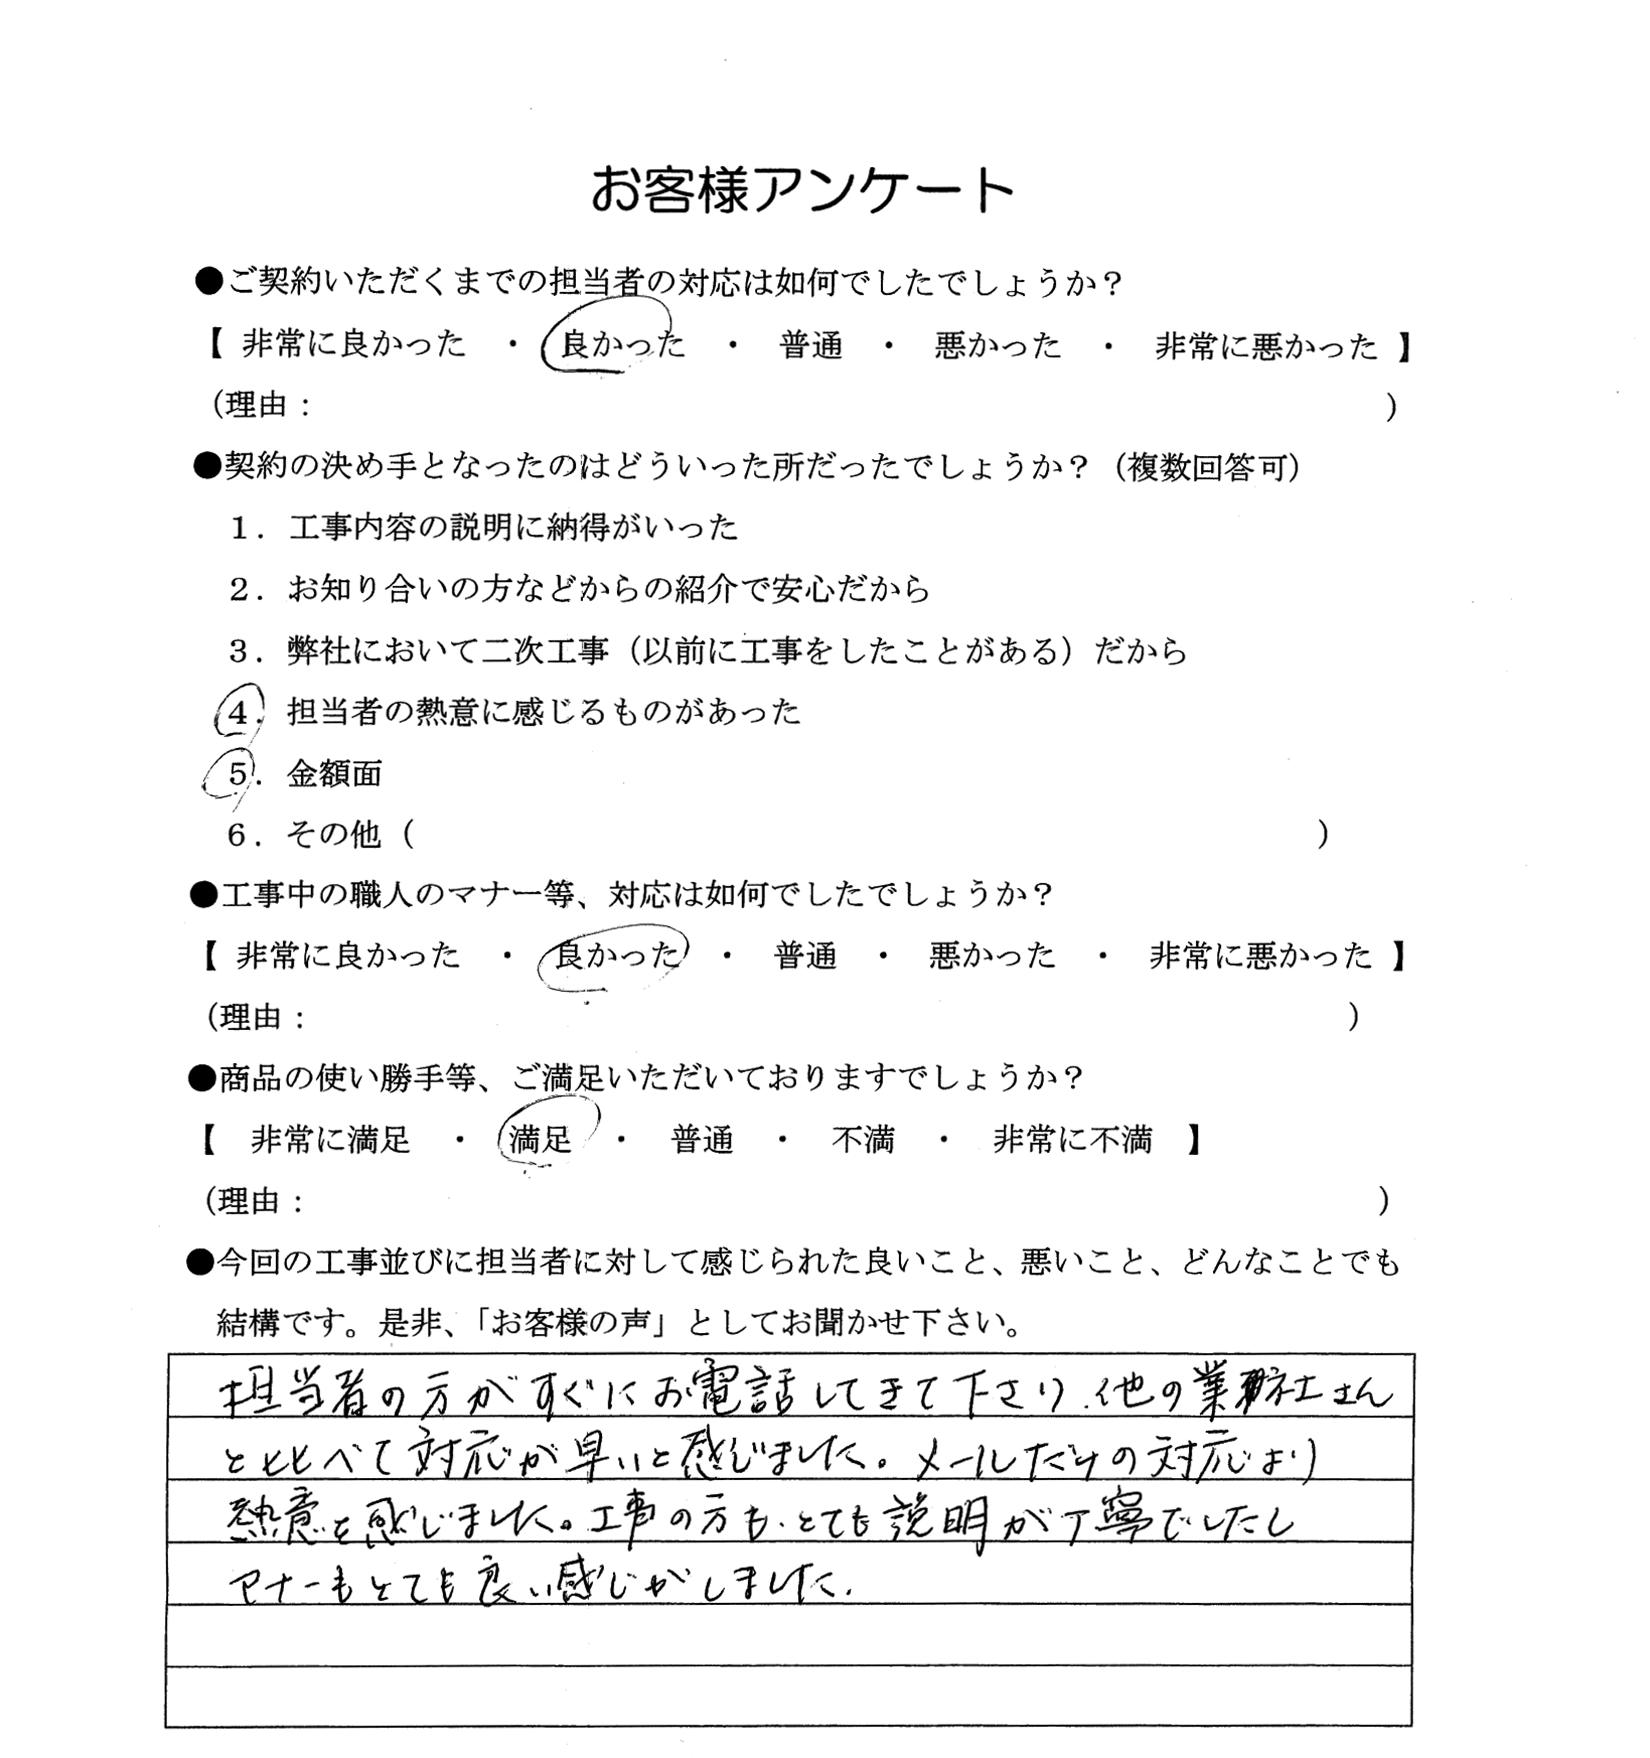 お客様アンケート
●ご契約いただくまでの担当者の対応は如何でしたでしょうか？
【 非常に良かった ・ 良かった ・ 普通 ・ 悪かった ・ 非常に悪かった 】
（理由： ）
●契約の決め手となったのはどういった所だったでしょうか？（複数回答可）
１．工事内容の説明に納得がいった
２．お知り合いの方などからの紹介で安心だから
３．弊社において二次工事（以前に工事をしたことがある）だから
４．担当者の熱意に感じるものがあった
５．金額面
６．その他（ ）
●工事中の職人のマナー等、対応は如何でしたでしょうか？
【 非常に良かった ・ 良かった ・ 普通 ・ 悪かった ・ 非常に悪かった 】
（理由： ）
●商品の使い勝手等、ご満足いただいておりますでしょうか？
【 非常に満足 ・ 満足 ・ 普通 ・ 不満 ・ 非常に不満 】
（理由： ）
●今回の工事並びに担当者に対して感じられた良いこと、悪いこと、どんなことでも
結構です。是非、「お客様の声」としてお聞かせ下さい。
担当者の方がすぐにお電話してきて下さり、他の業社さん
と比べて対応が早いと感じました。メールだけの対応より
熱意を感じました。工事の方も、とても説明が丁寧でしたし
マナーもとても良い感じがしました。